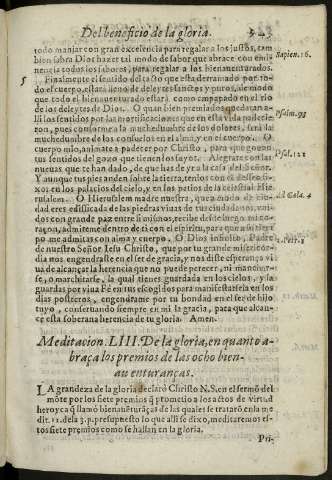 Del beneficio de la gloria.
todo manjar con gran excelencia para regalar a los justos, tam
bien sabra Dios hazer tal modo de sabor que abrace con emi-
nencia todos los sabores, para regalar a los bienauenturados.
Sapien. 16.
5 Finalmente el sentido del tacto que esta derramado por to-
do el cuerpo, estará lleno de deleytes sanctos y puros, de modo
que todo el bienauenturado estará como empapado en el rio
de los deleytes de Dios. O quan bien premiados quedaran a-
lli los sentidos por las mortificaciones que en esta vida padecie
ron, pues conforme a la muchedumbre de los dolores, será la
muchedumbre de los consuelos en el alma, y en el cuerpo. O
Psalm. 93
cuerpo mio, animate a padecer por Christo, para que gozen
tus sentidos del gozo que tienen los suyos. Alegrate con las
nueuas que te han dado, de que has de yr a la casa del Señor.
Psal. 121
Y aunque tus pies anden sobre la tierra, tenlos con el desseo fi-
xos en los palacios del cielo, y en los patios de la celestial Hie
rusalem. O Hierusalem madre nuestra, que a modo de ciu-
dad eres edificada de las piedras viuas de tus moradores, vni-
ad Gala. 4
dos con grande paz entre si mismos, recibe desde luego mi co-
raçon, admiteme dentro de ti con el espiritu, para que a su tiem
po me admitas con alma y cuerpo. O Dios infinito, Padre
de nuestro Señor Iesu Christo, que por tu grande misericor-
dia nos engendraste en el ser de gracia, y nos diste esperança vi
ua de alcançar la herencia que no puede perecer, ni manchar-
se, o marchitarse, la qual tienes guardada en los cielos, y la
guardas por viua Fè en tus escogidos para manifestarsela en los
dias postreros, engendrame por tu bondad en el ser de hijo
tuyo, conseruando siempre en mi la gracia, para que alcan-
ce esta soberana herencia de tu gloria. Amen.
Meditacion. LIII. De la gloria, en quanto a-
braça los premios de las ocho bien-
auenturanças.
LA grandeza de la gloria declaró Christo N. S. en el sermó del
mõte por los siete premios q̃ prometio a los actos de virtud
heroyca q̃ llamó bienauẽturãças de las quales se trataró en la me
dit. 11. dela 3. p. presupuesto lo que alli se dixo, meditaremos es-
tos siete premios como se hallan en la gloria.
Pri-